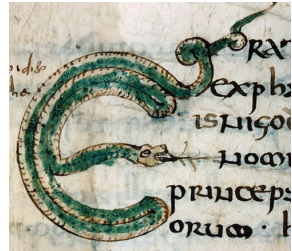 ERAT
expha
isnicod
nomi
princeps
orum · h